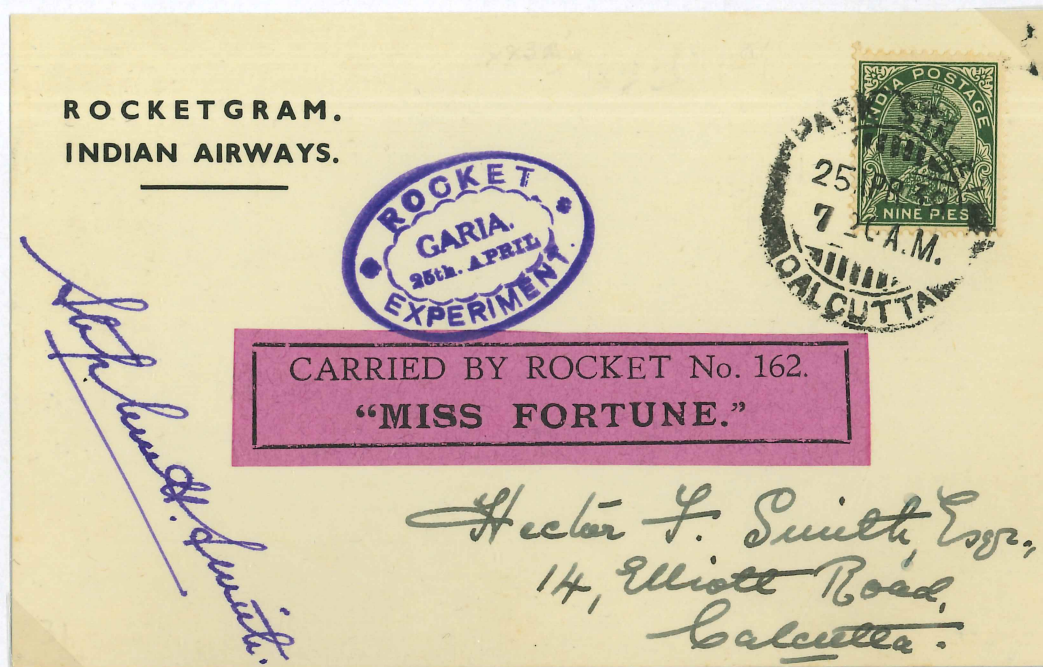 ROCKETGRAM.
INDIAN AIRWAYS.
INDIA POSTAGE
NINE PIES
PARK STREET
25 APR 36
7 20 A.M.
CALCUTTA
ROCKET
GARIA.
25th. APRIL
EXPERIMENT.
CARRIED BY ROCKET No. 162.
“MISS FORTUNE.”
Stephen H. Smith.
Hector F. Smith, Esqr.,
14, Elliott Road,
Calcutta.